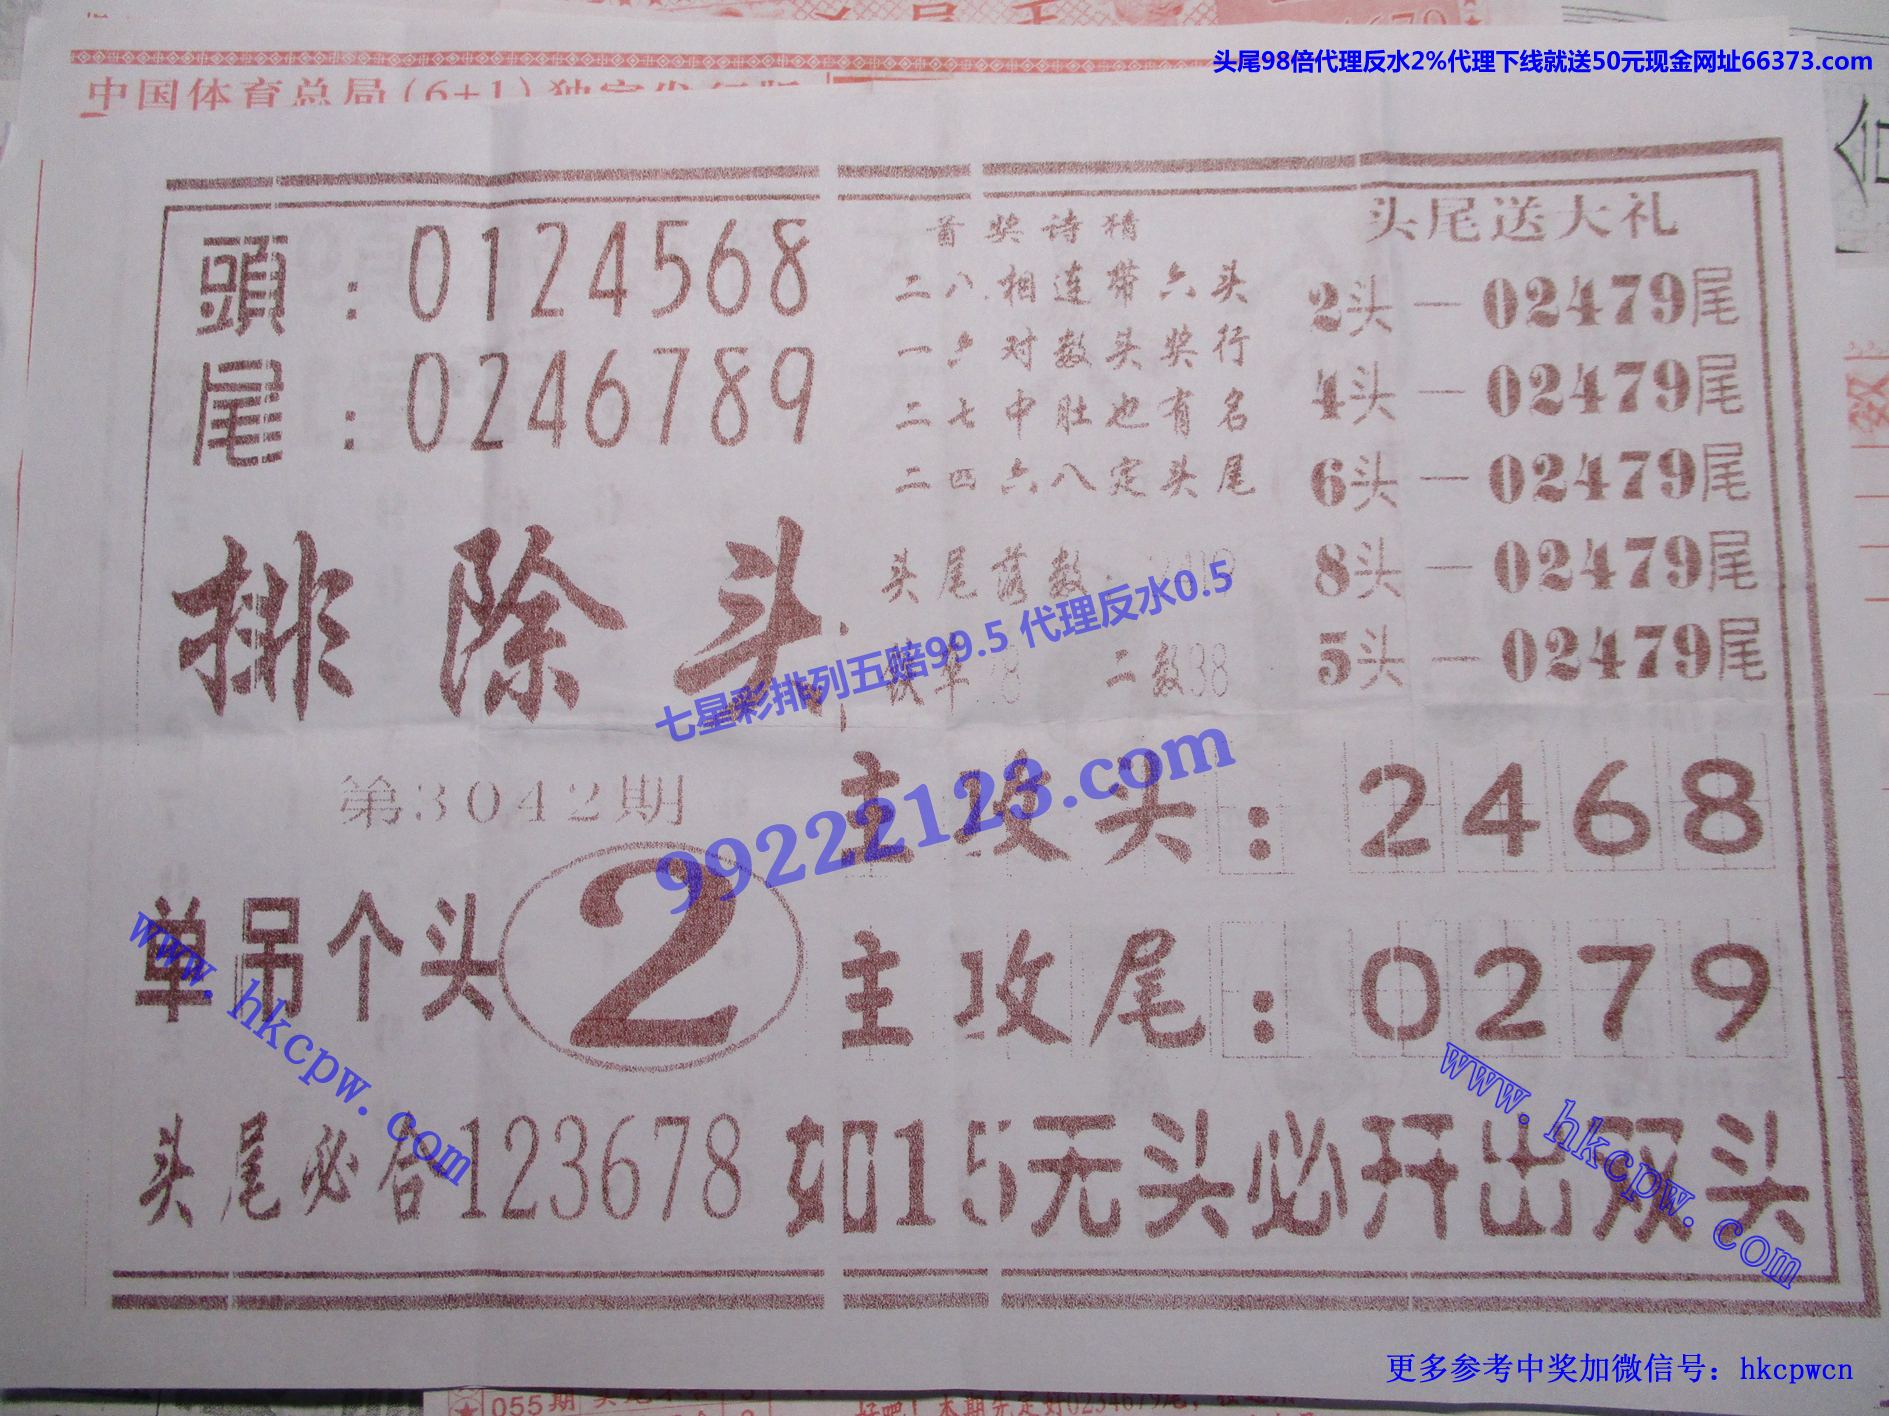 头尾98倍代理反水2%代理下线就送50元现金网址66373.com
中国体育总局(6+1)
頭：0124568
尾：0246789
首奖诗猜
二八相连带六头
一六对数头奖行
二七中肚也有名
二四六八定头尾
头尾送大礼
2头－02479尾
4头－02479尾
6头－02479尾
8头－02479尾
5头－02479尾
排除头
头尾落数：
二数38
七星彩排列五赔99.5 代理反水0.5
99222123.com
第3042期
主攻头：2468
单吊个头2
主攻尾：0279
www.hkcpw.com
www.hkcpw.com
头尾必合123678
如15无头必开出双头
更多参考中奖加微信号：hkcpwcn
055期